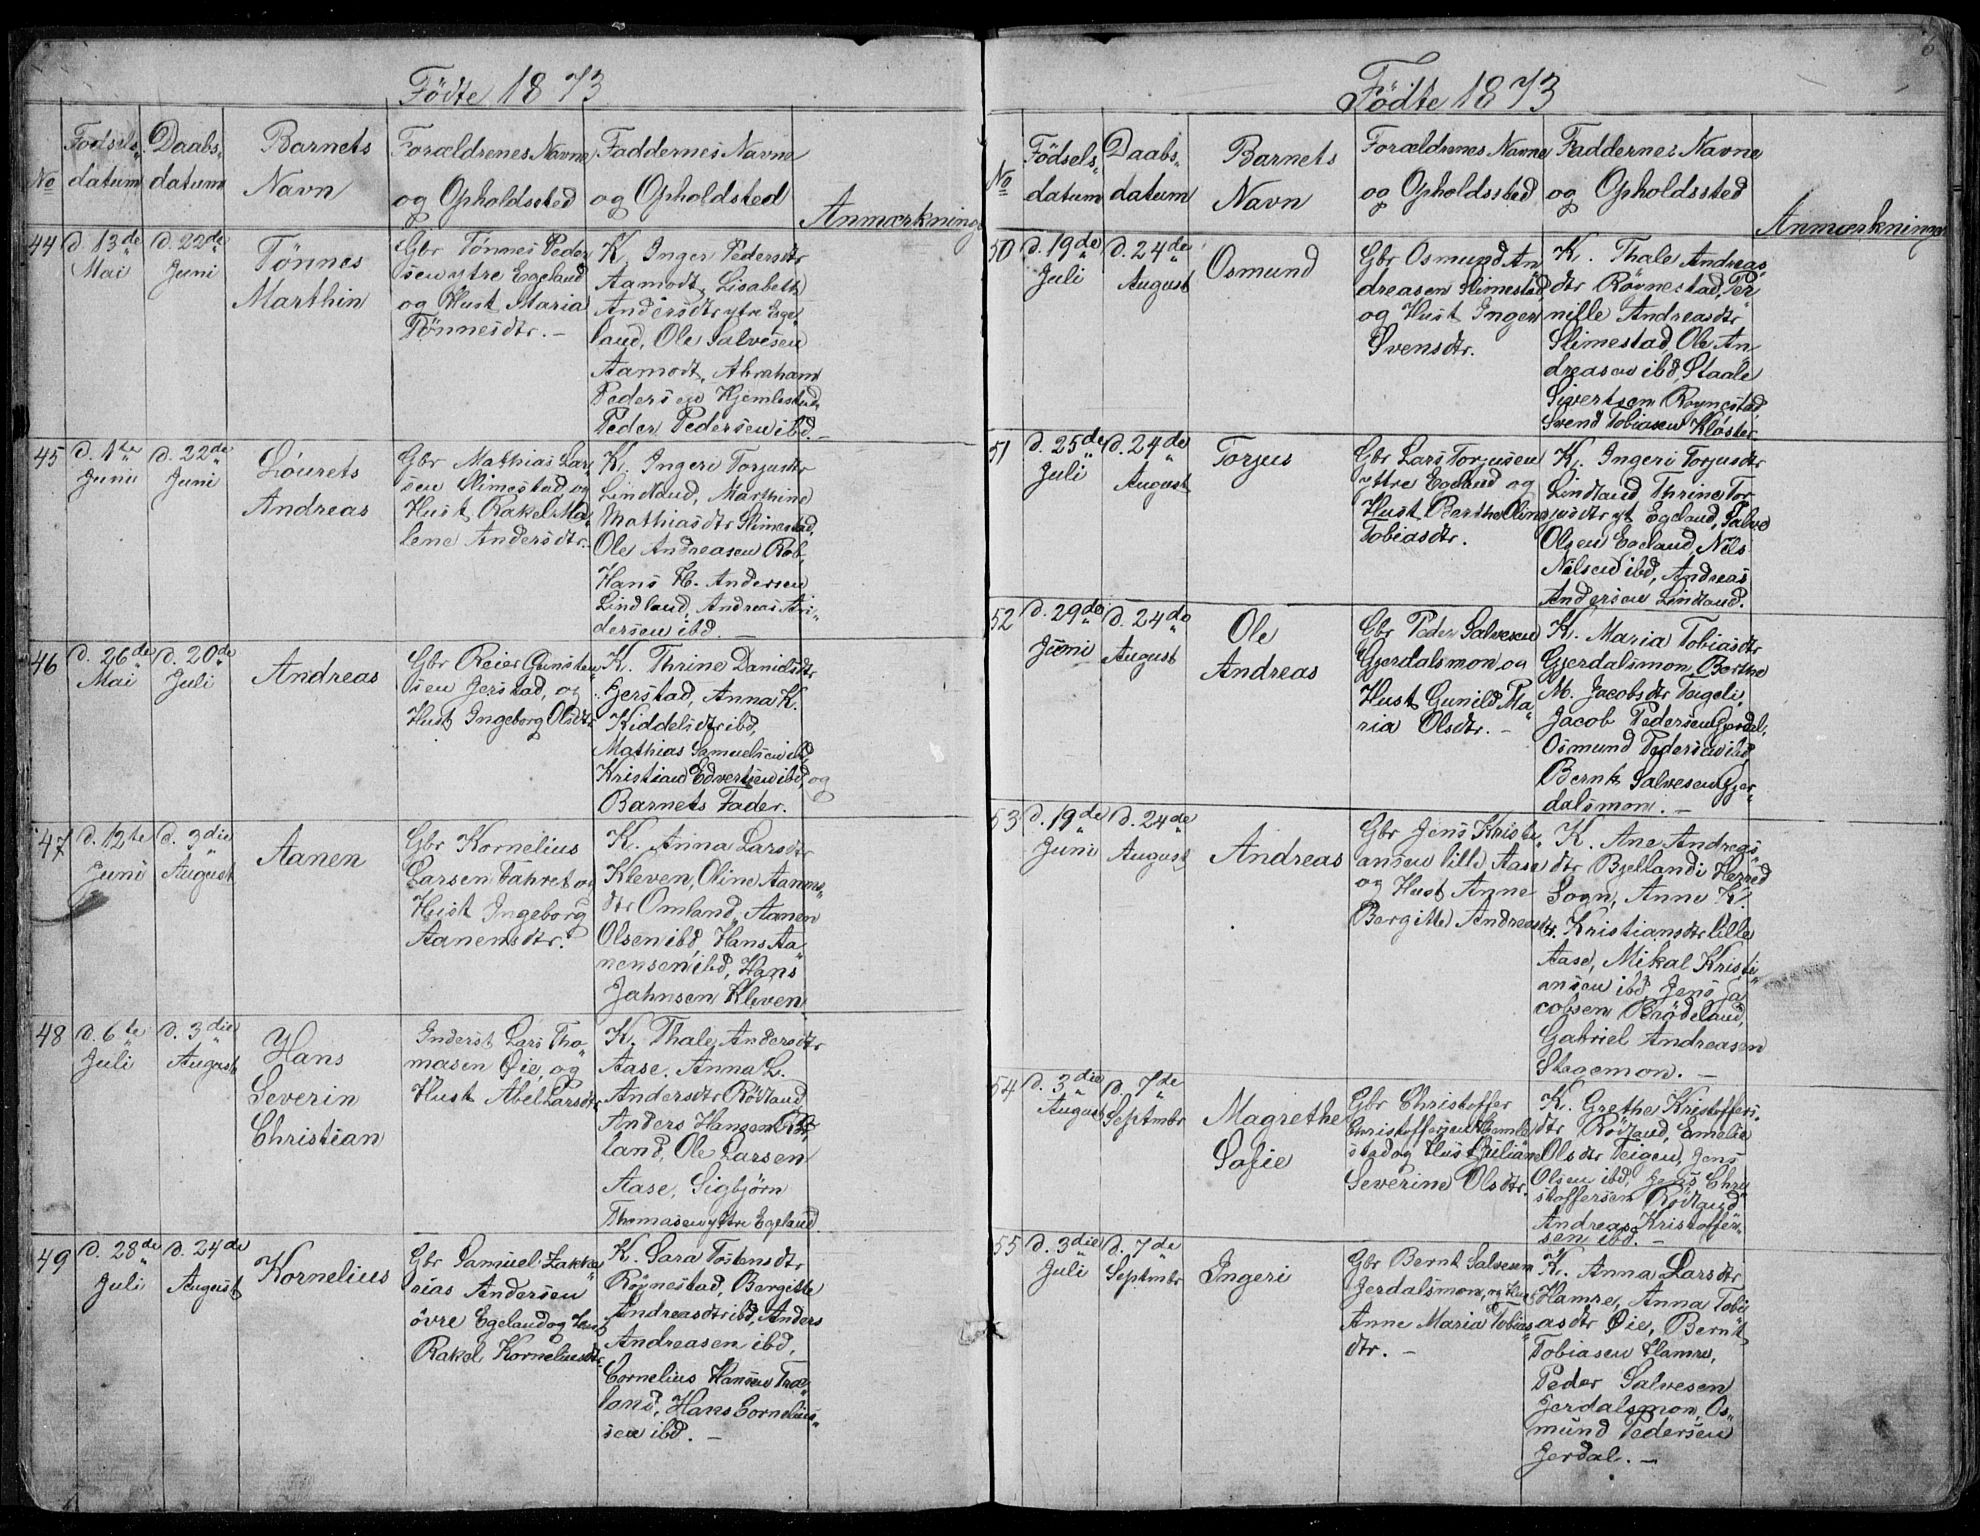 Födte 1873
No
Födsels„
datum
Daabs„
datum
Barnets
Navn
Forældrenes Navne
og Opholdssted
Faddernes Navne
og Opholdsted
Anmærkninge
44
d. 13de
Mai
d. 22de
Juni
Tönnes
Marthin
Gbr Tönnes Peder
sen ytre Egeland
og Hust Maria
Tönnesdtr. —
K. Inger Pedersdtr
Aamodt, Lisabeth
Andersdtr ytre Ege„
land, Ole Salvesen
Aamodt, Abraham
Pedersen Hjemlestad,
Peder Pedersen ibd. —
45
d. 1te
Juni
d. 22de
Juni
Löurets
Andreas
Gbr Mathias Lar
sen Slimestad og
Hust Rakel Ma„
lene Andersdtr.
K. Ingeri Torjusdtr
Lindland, Marthine
Mathiasdtr Slimestad,
Ole Andreasen Röb,
Hans Th. Andersen
Lindland, Andreas An„
dersen ibd. —
46
d. 26de
Mai
d. 20de
Juli
Andreas
Gbr Reier Gunsten„
sen Jerstad, og
Hust Ingeborg Olsdtr
K. Thrine Danielsdtr
Gerstad, Anna K.
Kiddelsdtr ibd,
Mathias Samuelsen ibd,
Kristian Edvertsen ibd, og
Barnets Fader.
47
d. 12te
Juni
d. 3die
August
Aanen
Gbr Kornelius
Larsen Fahret og
Hust Ingeborg
Aanensdtr.
K. Anna Larsdtr
Kleven, Oline Aanens„
dtr Omland, Aanen
Olsen ibd, Hans Aa„
nensen ibd, Hans
Jahnsen Kleven.
48
d. 6te
Juli
d. 3die
August
Hans
Severin
Christian
Inderst Lars Tho„
masen Øie, og
Hust Abel Larsdtr
K. Thale Andersdtr
Aase. Anna L.
Andersdtr Rödland
Anders Hansen Röd
land, Ole Larsen
Aase, Sigbjörn
Thomasen yttre Egeland.
49
d. 28de
Juli
d. 24de
August
Kornelius
Gbr Samuel Zakka„
rias Andersen
övre Egeland og Hust
Rakel Korneliusdtr.
K. Sara Tostensdtr
Röynestad, Bergitte
Andreasdtr ibd, Anders
Andreasen ibd,
Cornelius Hansen Træ„
land, Hans Cornelius„
sen ibd. —
Födte 1873
No
Födsels„
datum
Daabs„
datum
Barnets
Navn
Forældrenes Navne
og Opholdssted
Faddernes Navne
og Opholdssted
Anmærkninger
50
d. 19de
Juli
d. 24de
August
Osmund
Gbr Osmund An
dreasen Slimestad,
og Hust Inger
Svensdtr.
K. Thale Andreas„
dtr Röynestad, Per
nille Andreasdtr
Slimestad, Ole An
dreasen ibd, Staale
Sivertsen Röynestad,
Svend Tobiasen Kloster.
51
d. 25de
Juli
d. 24de
August
Torjus
Gbr Lars Torjusen
yttre Egeland og
Hust Berthe Oline
Tobiasdtr.
K. Ingeri Torjusdtr
Lindland Thrine Tor
jusdtr yt Egeland, Salve
Olsen Egeland, Nils
Nilsen ibd, Andreas
Andersen Lindland.
52
d. 29de
Juni
d. 24de
August
Ole
Andreas
Gbr Peder Salvesen
Gjerdalsmon og
Hust Gunild Ma„
ria Olsdtr. —
K. Maria Tobiasdtr
Gjerdalsmon, Berthe
M. Jacobsdtr Teigeli,
Jacob Pedersen Gjerdal,
Osmund Pedersen ibd,
Bernt Salvesen Gjer„
dalsmon. —
53
d. 19de
Juni
d. 24de
August
Andreas
Gbr Jens Kristi„
ansen lille Aase
og Hust Anne
Bergitte Andreasdtr.
K. Ane Andreas„
dtr Bjelland i Herred
Sogn, Anne K.
Kristiansdtr lille
Aase, Mikal Kristi„
ansen ibd, Jens Ja
cobsen Brödeland,
Gabriel Andreasen
Stagemon. —
54
d. 3die
August
d. 7de
Septmbr
Magrethe
Sofie
Gbr Christoffer
Christoffersen Hjemle
stad og Hust Juliane
Severine Olsdtr.
K. Grethe Kristoffers„
dtr Rödland, Emelie
Olsdtr Teigen, Jens
Olsen ibd, Jens Chri
stoffersen Rödland
Andreas Kristoffer„
sen ibd. —
55
d. 3die
Juli
d. 7de
Septmbr
Ingeri
Gbr Bernt Salvesen
Jerdalsmon, og Hust
Anne Maria Tobias„
dtr. —
K. Anna Larsdtr
Hamre, Anna Tobi„
asdtr Øie, Bernt
Tobiasen Hamre,
Peder Salvesen
Jerdalsmon, Os„
mund Pedersen
Jerdal. —